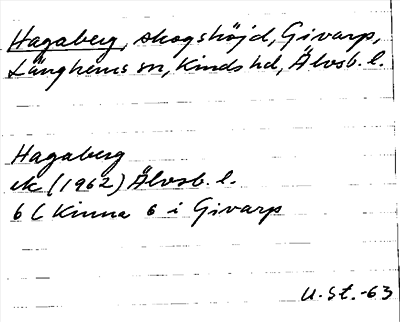 Hagaberg, skogshöjd, Givarp,
Länghems sn, Kinds hd, Älvsb. l.
Hagaberg
ek (1962) Älvsb. l.
6 C Kinna 6 i Givarp
U. St. -63